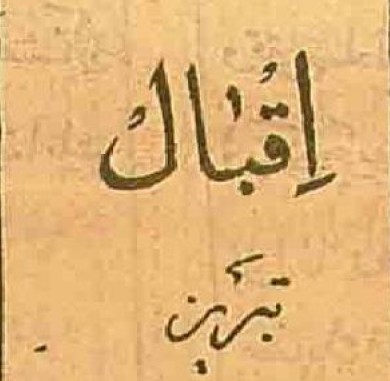 اِقبال
تبریز